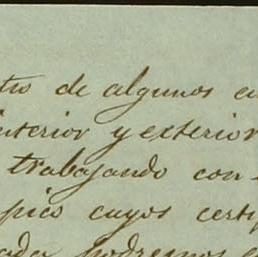 tro de algunos
interior y exterior
trabajando con-
pios cuyos certi
podremos